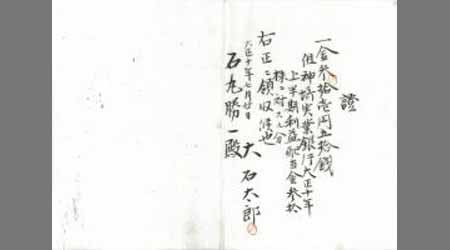 證
一金参拾壱円五拾銭
但神埼実業銀行大正十年
上半期利益配当金参拾
株ニ対スル分
右正ニ領収候也
大正十年七月廿日
大石太郎
石丸勝一殿